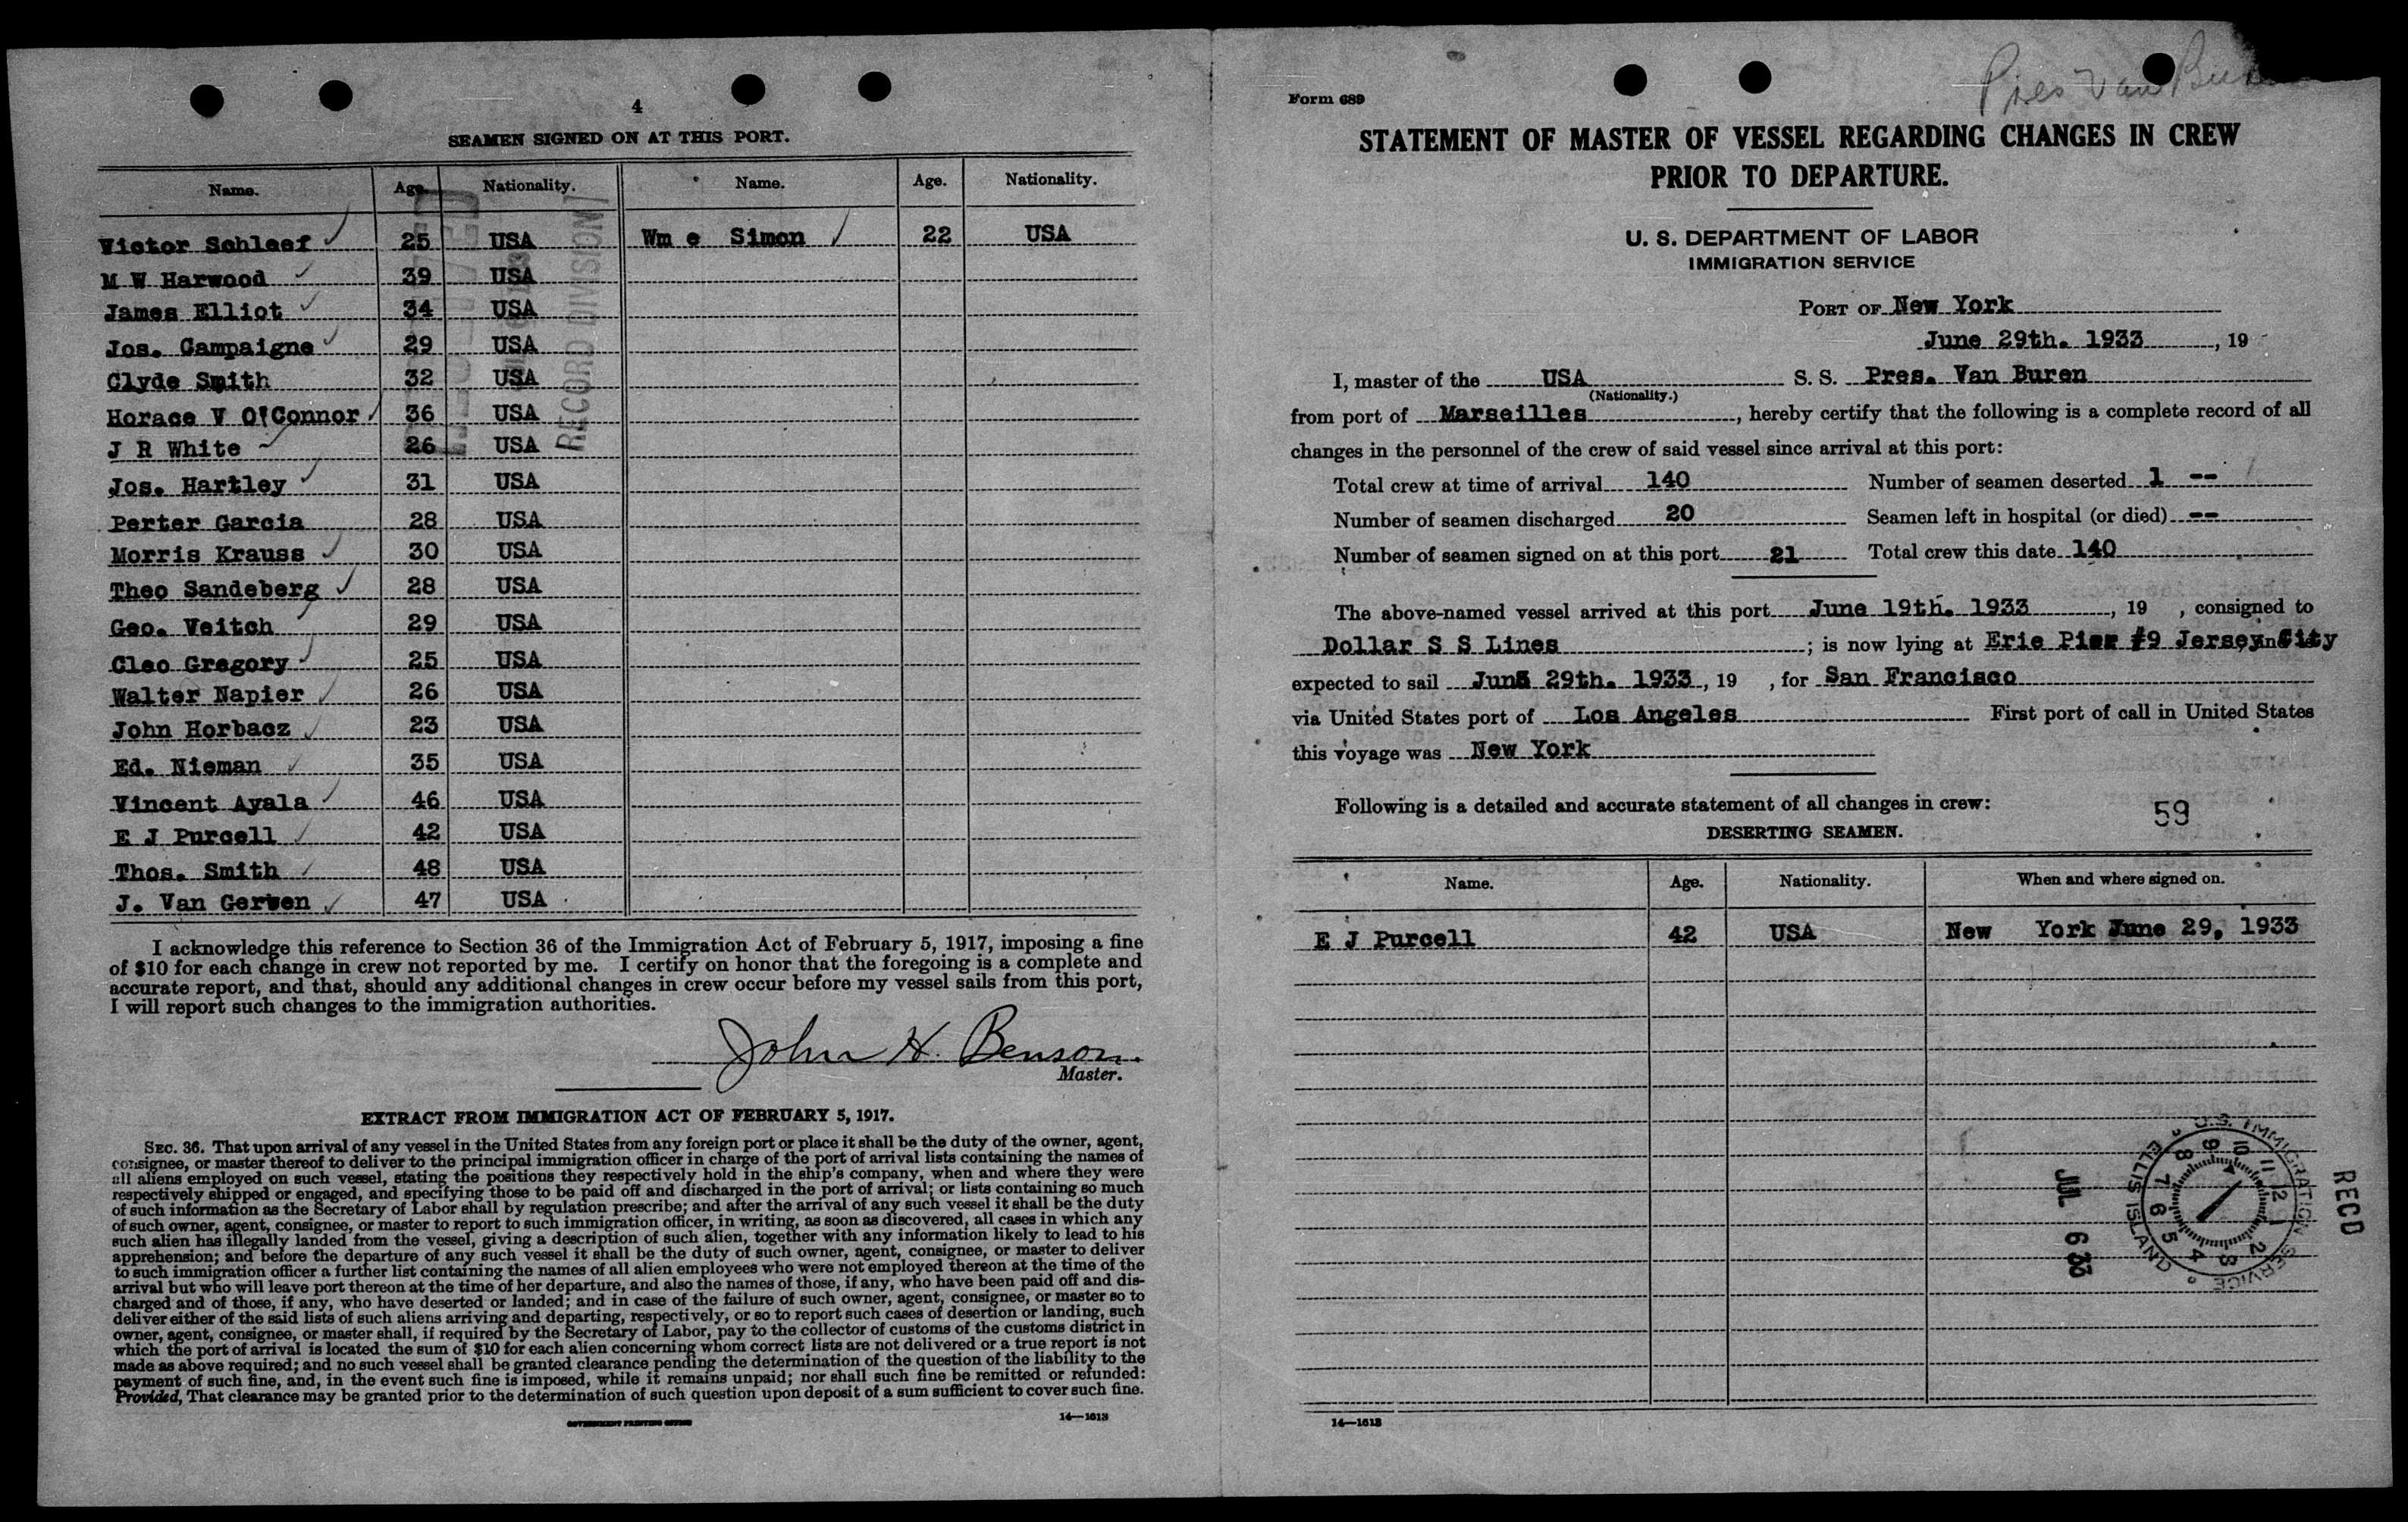 4
SEAMEN SIGNED ON AT THIS PORT.
Name. Age. Nationality. Name. Age. Nationality.
Victor Schleef 25 USA Wm e Simon 22 USA
M W Harwood 39 USA
James Elliot 34 USA
Jos. Campaigne 29 USA
Clyde Smith 32 USA
Horace V O'Connor 36 USA
J R White 26 USA
Jos. Hartley 31 USA
Perter Garcia 28 USA
Morris Krauss 30 USA
Theo Sandeberg 28 USA
Geo. Veitch 29 USA
Cleo Gregory 25 USA
Walter Napier 26 USA
John Horbacz 23 USA
Ed. Nieman 35 USA
Vincent Ayala 46 USA
E J Purcell 42 USA
Thos. Smith 48 USA
J. Van Gerwen 47 USA
RECORD DIVISION
I acknowledge this reference to Section 36 of the Immigration Act of February 5, 1917, imposing a fine
of $10 for each change in crew not reported by me. I certify on honor that the foregoing is a complete and
accurate report, and that, should any additional changes in crew occur before my vessel sails from this port,
I will report such changes to the immigration authorities.
John H. Benson.
Master.
EXTRACT FROM IMMIGRATION ACT OF FEBRUARY 5, 1917.
SEC. 36. That upon arrival of any vessel in the United States from any foreign port or place it shall be the duty of the owner, agent,
consignee, or master thereof to deliver to the principal immigration officer in charge of the port of arrival lists containing the names of
all aliens employed on such vessel, stating the positions they respectively hold in the ship's company, when and where they were
respectively shipped or engaged, and specifying those to be paid off and discharged in the port of arrival; or lists containing so much
of such information as the Secretary of Labor shall by regulation prescribe; and after the arrival of any such vessel it shall be the duty
of such owner, agent, consignee, or master to report to such immigration officer, in writing, as soon as discovered, all cases in which any
such alien has illegally landed from the vessel, giving a description of such alien, together with any information likely to lead to his
apprehension; and before the departure of any such vessel it shall be the duty of such owner, agent, consignee, or master to deliver
to such immigration officer a further list containing the names of all alien employees who were not employed thereon at the time of the
arrival but who will leave port thereon at the time of her departure, and also the names of those, if any, who have been paid off and dis-
charged and of those, if any, who have deserted or landed; and in case of the failure of such owner, agent, consignee, or master so to
deliver either of the said lists of such aliens arriving and departing, respectively, or so to report such cases of desertion or landing, such
owner, agent, consignee, or master shall, if required by the Secretary of Labor, pay to the collector of customs of the customs district in
which the port of arrival is located the sum of $10 for each alien concerning whom correct lists are not delivered or a true report is not
made as above required; and no such vessel shall be granted clearance pending the determination of the question of the liability to the
payment of such fine, and, in the event such fine is imposed, while it remains unpaid; nor shall such fine be remitted or refunded:
Provided, That clearance may be granted prior to the determination of such question upon deposit of a sum sufficient to cover such fine.
GOVERNMENT PRINTING OFFICE 14—1613
Pres Van Buren
Form 689
STATEMENT OF MASTER OF VESSEL REGARDING CHANGES IN CREW
PRIOR TO DEPARTURE.
U. S. DEPARTMENT OF LABOR
IMMIGRATION SERVICE
PORT OF New York
June 29th. 1933, 19
I, master of the USA S. S. Pres. Van Buren
(Nationality.)
from port of Marseilles, hereby certify that the following is a complete record of all
changes in the personnel of the crew of said vessel since arrival at this port:
Total crew at time of arrival 140 Number of seamen deserted 1 --
Number of seamen discharged 20 Seamen left in hospital (or died) --
Number of seamen signed on at this port 21 Total crew this date 140
The above-named vessel arrived at this port June 19th. 1933, 19 , consigned to
Dollar S S Lines; is now lying at Erie Pier #9 Jersey City
expected to sail June 29th. 1933, 19 , for San Francisco
via United States port of Los Angeles First port of call in United States
this voyage was New York
Following is a detailed and accurate statement of all changes in crew:
59
DESERTING SEAMEN.
Name. Age. Nationality. When and where signed on.
E J Purcell 42 USA New York June 29, 1933
U.S. IMMIGRATION SERVICE
ELLIS ISLAND
1 2 3 4 5 6 7 8 9 10 11 12
JUL 6 33
RECD
14—1613